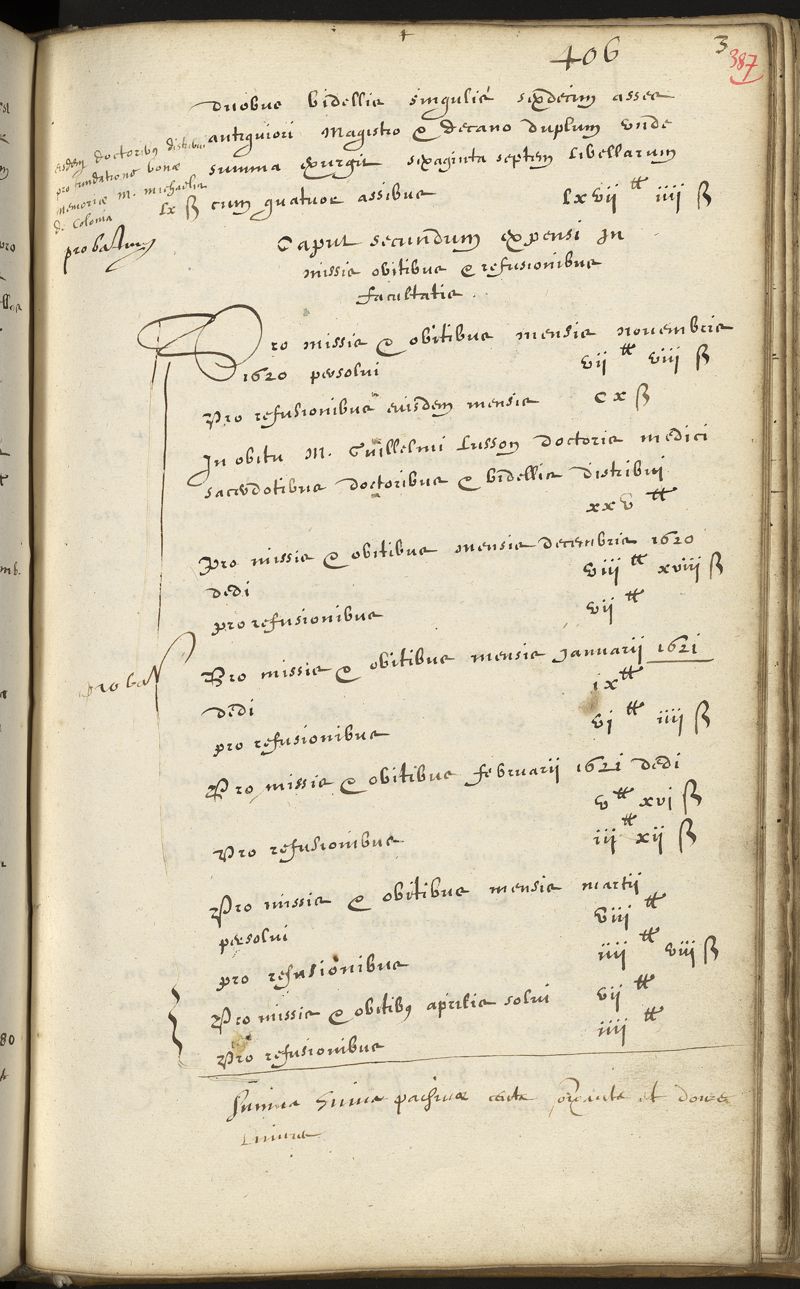 406
3
387
duobus bidellis singulis sexdecim asses
antiquiori Magistro & decano duplum unde
summa exurgit sexaginta septem libellarum
cum quatuor assibus lxvii ₶ iiii ß
eisdem doctoribus distribui
pro fundatione bonæ
memoriæ M. Michaelis
de Colonia lx ß
probatur
Caput secundum expensi In
missis obitibus & refusionibus
facultatis.
Pro missis & obitibus mensis novembris
1620 persolui vii ₶ viii ß
Pro refusionibus eiusdem mensis cx ß
In obitu M. Guillelmi Lusson doctoris medici
sacerdotibus doctoribus & bidellis distribui
xxv ₶
Pro missis & obitibus mensis decembris 1620
dedi viii ₶ xviii ß
pro refusionibus vii ₶
Pro missis & obitibus mensis Januarij 1621
dedi ix ₶
pro refusionibus vj ₶ iiij ß
Pro missis & obitibus februarij 1621 dedi
v ₶ xvj ß
Pro refusionibus iij ₶ xij ß
Pro missis & obitibus mensis martij
persolui viij ₶
pro refusionibus iiij ₶ viij ß
Pro missis & obitibus aprilis solui vij ₶
Pro refusionibus iiij ₶
Summa huius paginæ et